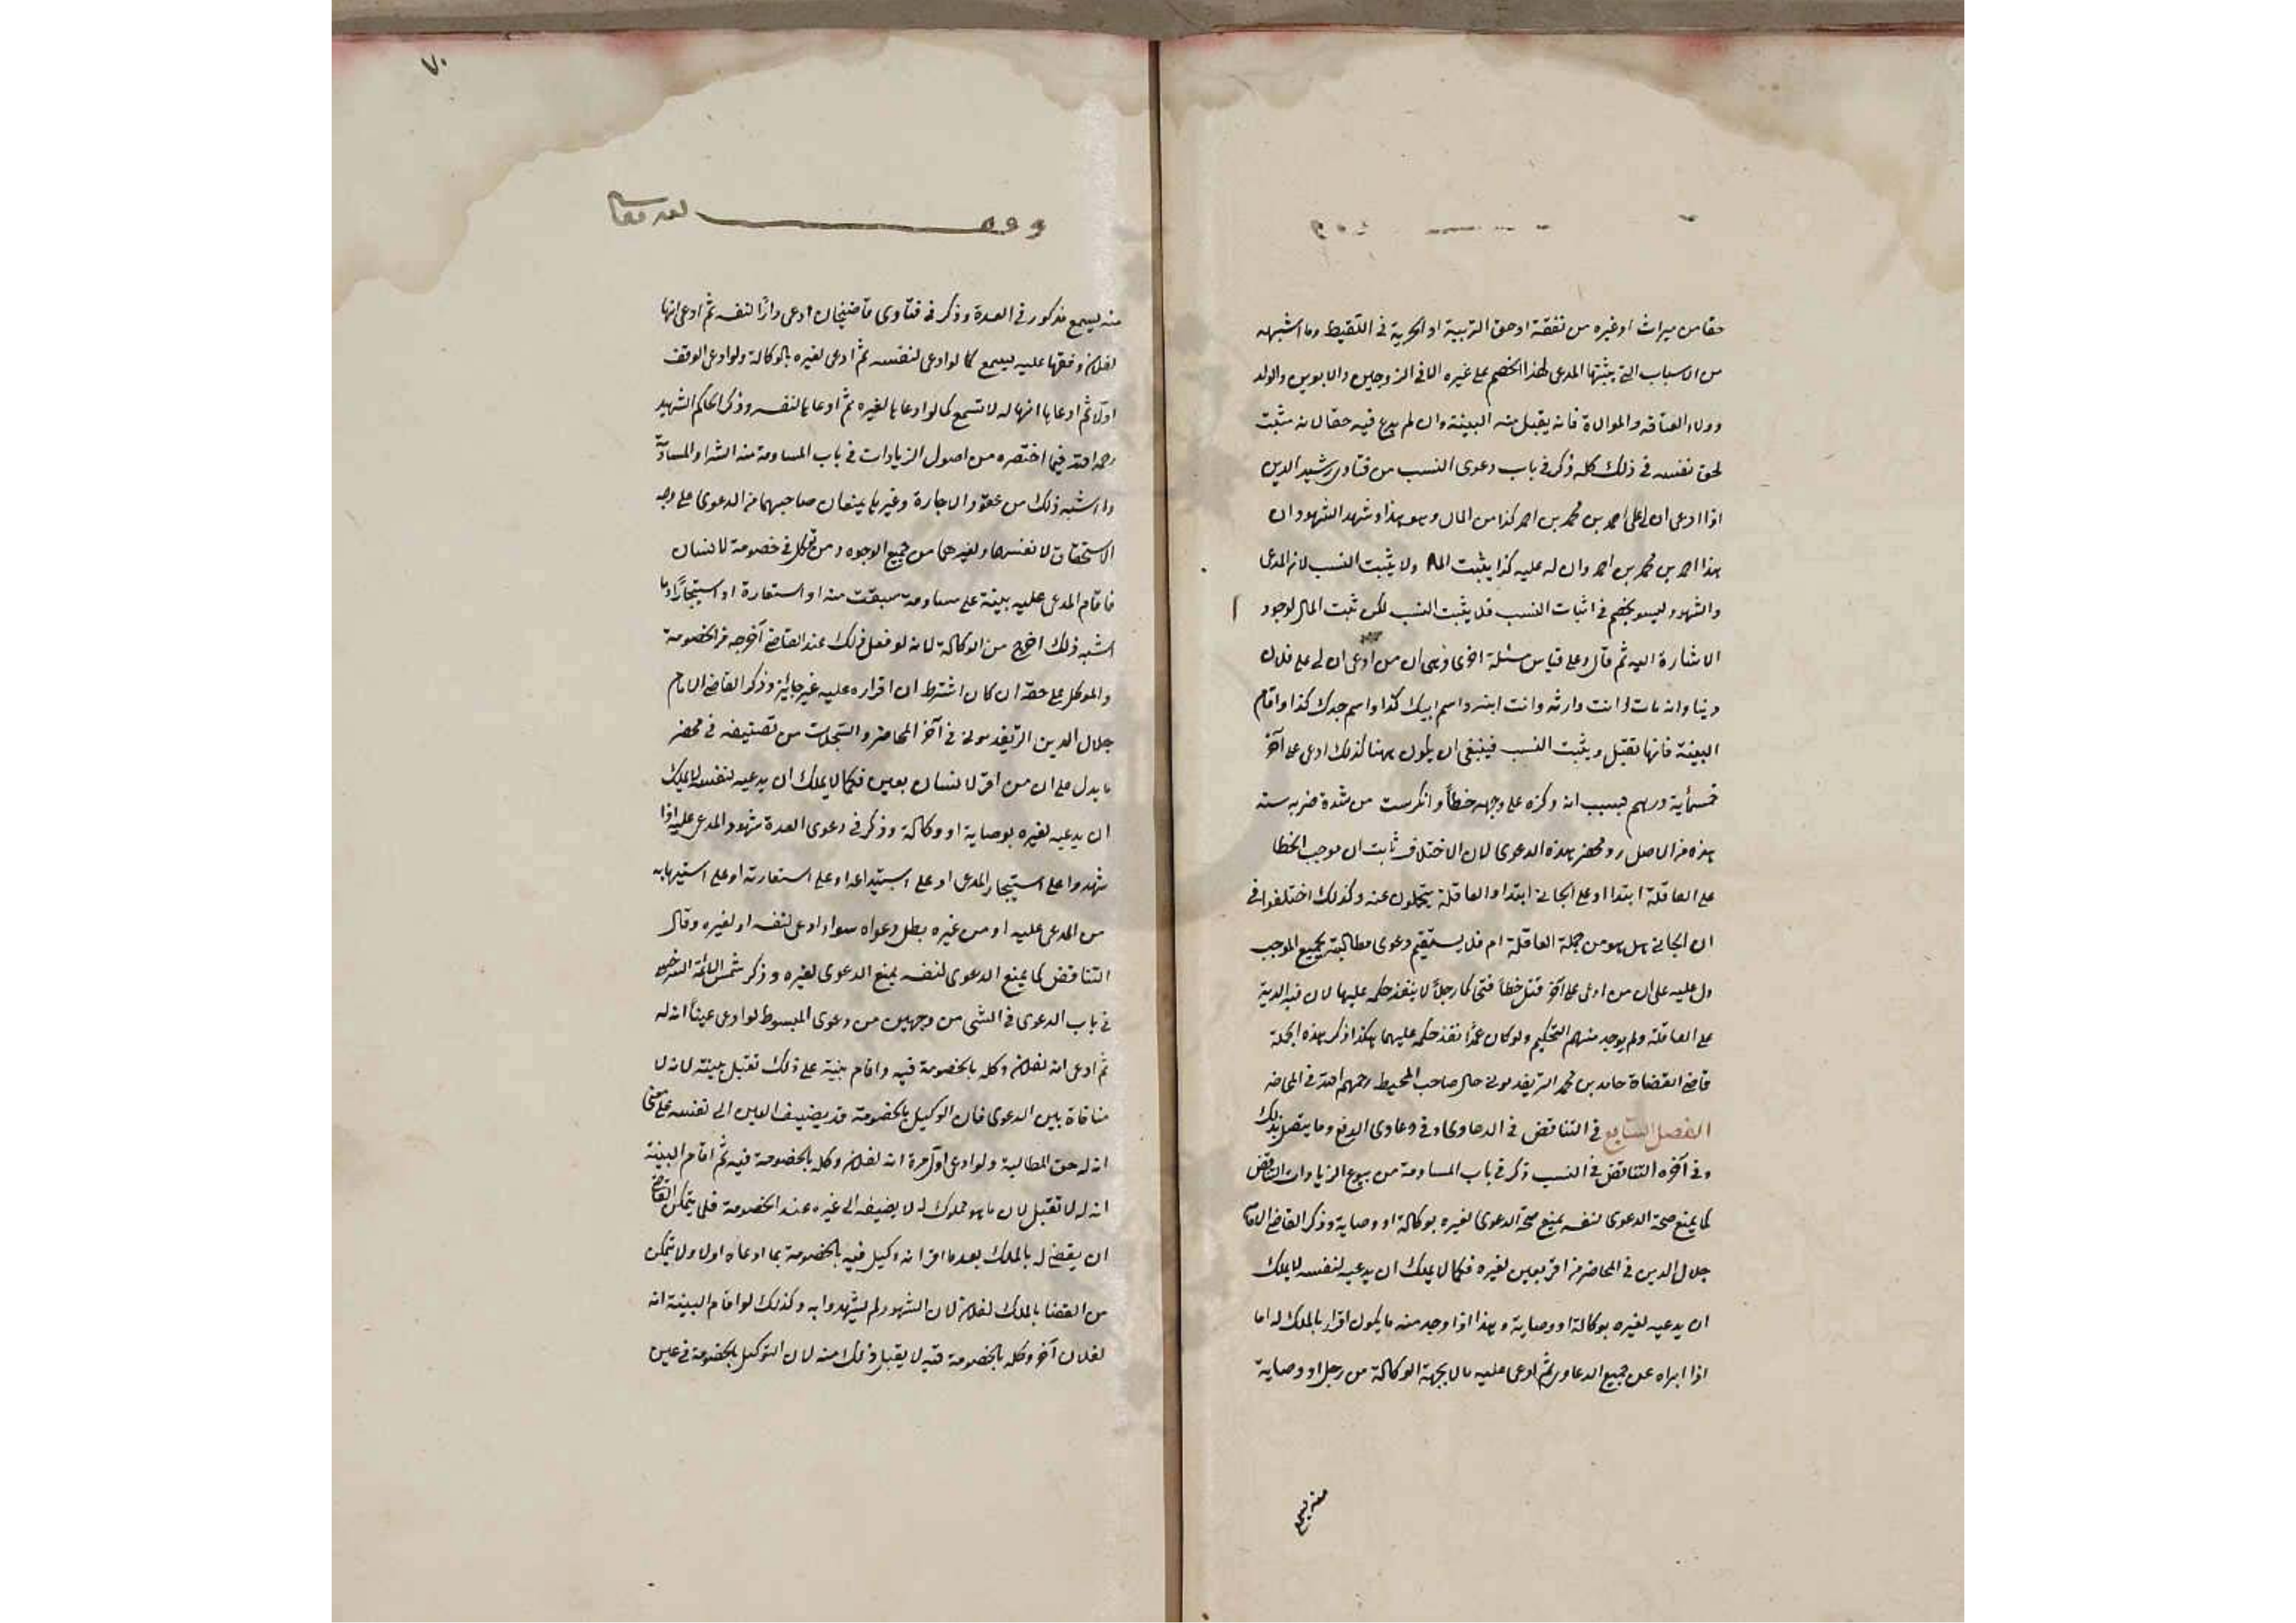 حقا من ميراث او غيره من نفقة او حق التربية او الحرية في اللقيط وما اشبهه
من الاسباب التي يثبتها المدعى لهذا الخصم على غيره الا في الزوجين والابوين والولد
وولاء العتاقه والموالاة فانه يقبل منه البينة وان لم يدع فيه حقا لانه مثبت
لحق نفسه في ذلك كله ذكر في باب دعوى النسب من فتاوى رشيد الدين
اذا ادعى ان لى على احمد بن محمد بن احمد كذا من المال وهو هذا وشهد الشهود ان
هذا احمد بن محمد بن احمد وان له عليه كذا يثبت المال ولا يثبت النسب لان المدعى
والشهود ليسو بخصم في اثبات النسب فلا يثبت النسب لكن ثبت المال لوجود
الاشارة اليه ثم قال وعلى قياس مسئلة اخرى وهى ان من ادعى ان لى على فلان
دينا وانه مات وانت وارثه وانت ابنه واسم ابيك كذا واسم جدك كذا واقام
البينة فانها تقبل ويثبت النسب فينبغى ان يكون ههنا كذلك ادعى على آخر
خمسمأية درهم بسبب انه وكزه على وجهه خطأ وانكسرت من شدة ضربه سنه
هذه من الاصل رد محضر هذه الدعوى لان الاختلاف ثابت ان موجب الخطا
على العاقلة ابتدا او على الجانى ابتدا والعاقلة يتحملون عنه وكذلك اختلفوا في
ان الجانى هل هو من جملة العاقلة ام فلا يستقيم دعوى مطالبته بجميع الموجب
دل عليه على ان من ادعى على آخر قتل خطأ فتحاكما رجلاً لا ينفذ حكمه عليها لان فيه الدية
على العاقلة ولم يوجد منهم التحكيم ولو كان عمدًا نفذ حكمه عليهما هكذا ذكر هذه الجملة
قاضى القضاة حامد بن محمد الريغدمونى خال صاحب المحيط رحمهم الله في المحاضر
الفصل السابع في التناقض في الدعاوى وفي دعاوى الدفع وما يتصل بذلك
وفي آخره التناقض في النسب ذكر في باب المساومة من بيوع الزيادات التناقض
كما يمنع صحة الدعوى لنفسه يمنع صحة الدعوى لغيره بوكالة او وصاية وذكر القاضى الامام
جلال الدين في المحاضر من اقر بعين لغيره فكما لا يملك ان يدعيه لنفسه لا يملك
ان يدعيه لغيره بوكالة او وصاية وهذا اذا وجد منه ما يكون اقرار بالملك له اما
اذا ابراه عن جميع الدعاوى ثم ادعى عليه مالا بجهة الوكالة من رجل او وصاية
منه ليسمع
٧٠
وقف لله تعالى
منه ليسمع مذكور في العدة وذكر في فتاوى قاضيخان ادعى دارًا لنفسه ثم ادعى انها
لفلان وقفها عليه يسمع كما لو ادعى لنفسه ثم ادعى لغيره بالوكالة ولو ادعى الوقف
اولاً ثم ادعاها انها له لا تسمع كما لو ادعاها لغيره ثم ادعاها لنفسه وذكر الحاكم الشهيد
رحمه الله فيما اختصره من اصول الزيادات في باب المساومة منه الشرا والمساومة
وما اشبه ذلك من عقود الاجارة وغيرها يمنعان صاحبهما من الدعوى على وجه
الاستحقاق لا نفسهما ولغيرهما من جميع الوجوه ومن توكل في خصومة لانسان
فاقام المدعى عليه بينة على مساومة سبقت منه او استعارة او استيجارًا وما
اشبه ذلك اخرج من الوكالة لانه لو فعل ذلك عند القاضى آخرجه من الخصومة
والموكل على حقه ان كان اشترط ان اقراره عليه غير جايز وذكر القاضى الامام
جلال الدين الريغدمونى في آخر المحاضر والسجلات من تصنيفه في محضر
ما يدل على ان من اقر لانسان بعين فكما لا يملك ان يدعيه لنفسه لا يملك
ان يدعيه لغيره بوصاية او وكالة وذكر في دعوى العدة شهود المدعى عليه اذا
شهدوا على استيجار المدعى او على استيداعه او على استعارته او على استيهابه
من المدعى عليه او من غيره بطل دعواه سواء ادعى لنفسه او لغيره وقال
التناقض كما يمنع الدعوى لنفسه يمنع الدعوى لغيره وذكر شمس الائمة السرخسى
في باب الدعوى في الشى من وجهين من دعوى المبسوط لو ادعى عيناً انه له
ثم ادعى انه لفلان وكله بالخصومة فيه واقام بينة على ذلك تقبل بينته لانه لا
منافاة بين الدعوى فان الوكيل بالخصومة قد يضيف العين الى نفسه على معنى
انه له حق المطالبة ولو ادعى اول مرة انه لفلان وكله بالخصومة فيه ثم اقام البينة
انه له لا تقبل لان ما هو مملوك له لا يضيفه الى غيره عند الخصومة فلا يتمكن القاضى
ان يقضى له بالملك بعد ما اقر انه وكيل فيه بالخصومة بما ادعاه اولا ولا يتمكن
من القضا بالملك لفلان لان الشهود لم يشهدوا به وكذلك لو اقام البينة انه
لفلان آخر وكله بالخصومة فيه لا يقبل ذلك منه لان التوكيل بالخصومة في عين